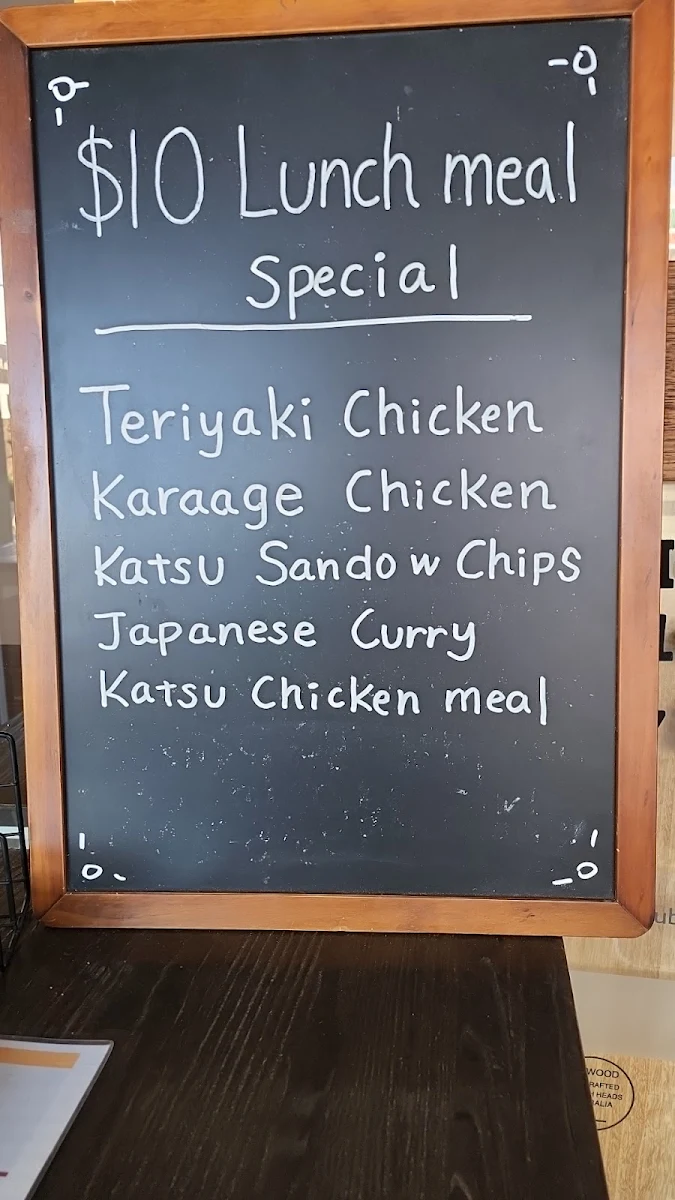 $10 Lunch meal
Special
Teriyaki Chicken
Karaage Chicken
Katsu Sando w Chips
Japanese Curry
Katsu Chicken meal
WOOD